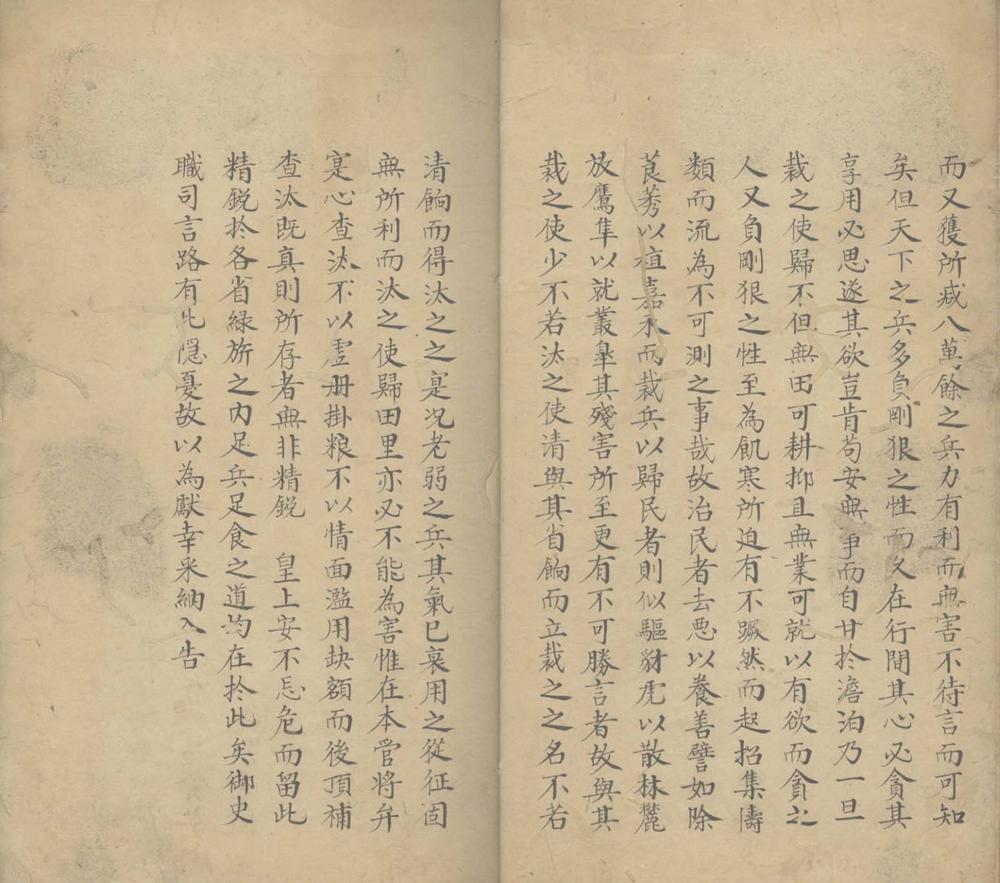 而又獲所減八萬餘之兵力有利而無害不待言而可知
矣但天下之兵多負剛狠之性而久在行間其心必貪其
享用必思遂其欲豈肯苟安無事而自甘於澹泊乃一旦
裁之使歸不但無田可耕抑且無業可就以有欲而貪之
人又負剛狠之性至為飢寒所迫有不蹶然而起招集儔
類而流為不可測之事哉故治民者去惡以養善譬如除
莨莠以植嘉禾而裁兵以歸民者則似驅豺虎以散林麓
放鷹隼以就叢皋其殘害所至更有不可勝言者故與其
裁之使少不若汰之使清與其省餉而立裁之之名不若
清餉而得汰之之寔况老弱之兵其氣已衰用之從征固
無所利而汰之使歸田里亦必不能為害惟在本管將弁
寔心查汰不以虛册掛粮不以情面濫用缺額而後頂補
查汰既真則所存者無非精鋭 皇上安不忘危而留此
精鋭於各省緑旂之內足兵足食之道均在於此矣御史
職司言路有此隱憂故以為獻幸采納入告